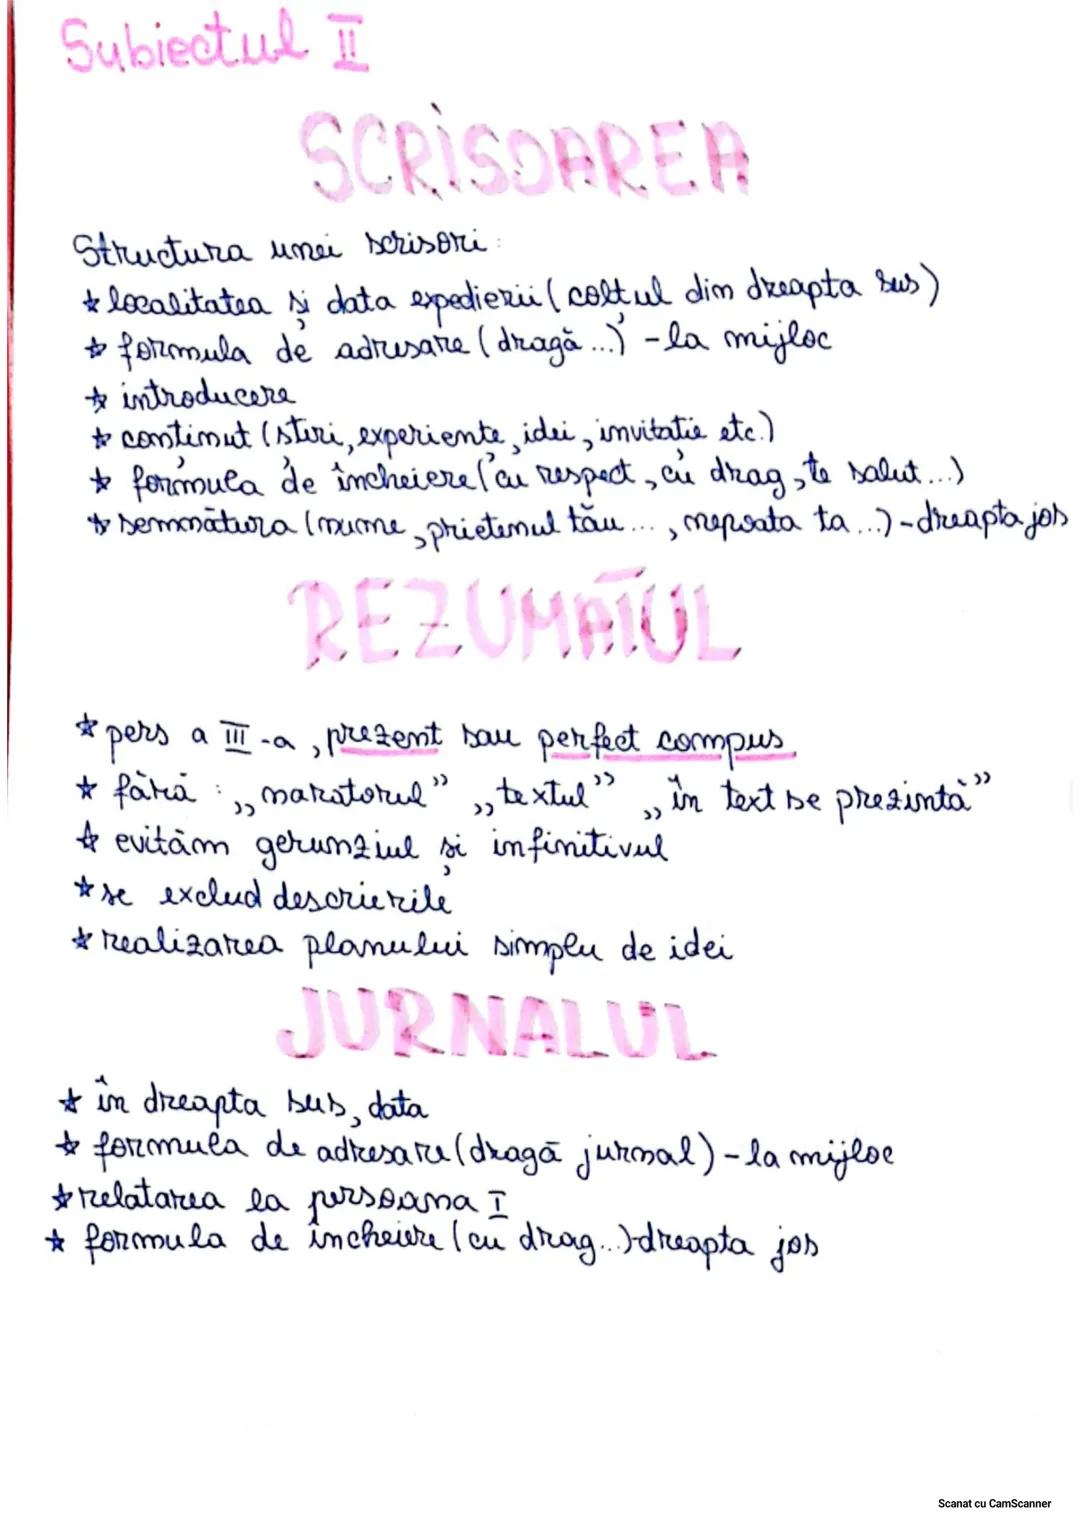 Subiectul II
SCRISOAREA
Structura unei scrisori:
* localitatea și data expedierii (colțul din dreapta sus)
* formula de adresare (dragă ...) - la mijloc
* introducere
* conținut (știri, experiențe, idei, invitație etc.)
* formula de încheiere (cu respect, cu drag, te salut ...)
* semnătura (nume, prietenul tău ..., nepoata ta ...) - dreapta jos
REZUMATUL
* pers a III-a, prezent sau perfect compus
* fără: „naratorul” „textul” „în text se prezintă”
* evităm gerunziul și infinitivul
* se exclud descrierile
* realizarea planului simplu de idei
JURNALUL
* în dreapta sus, data
* formula de adresare (dragă jurnal) - la mijloc
* relatarea la persoana I
* formula de încheiere (cu drag...)-dreapta jos
Scanat cu CamScanner